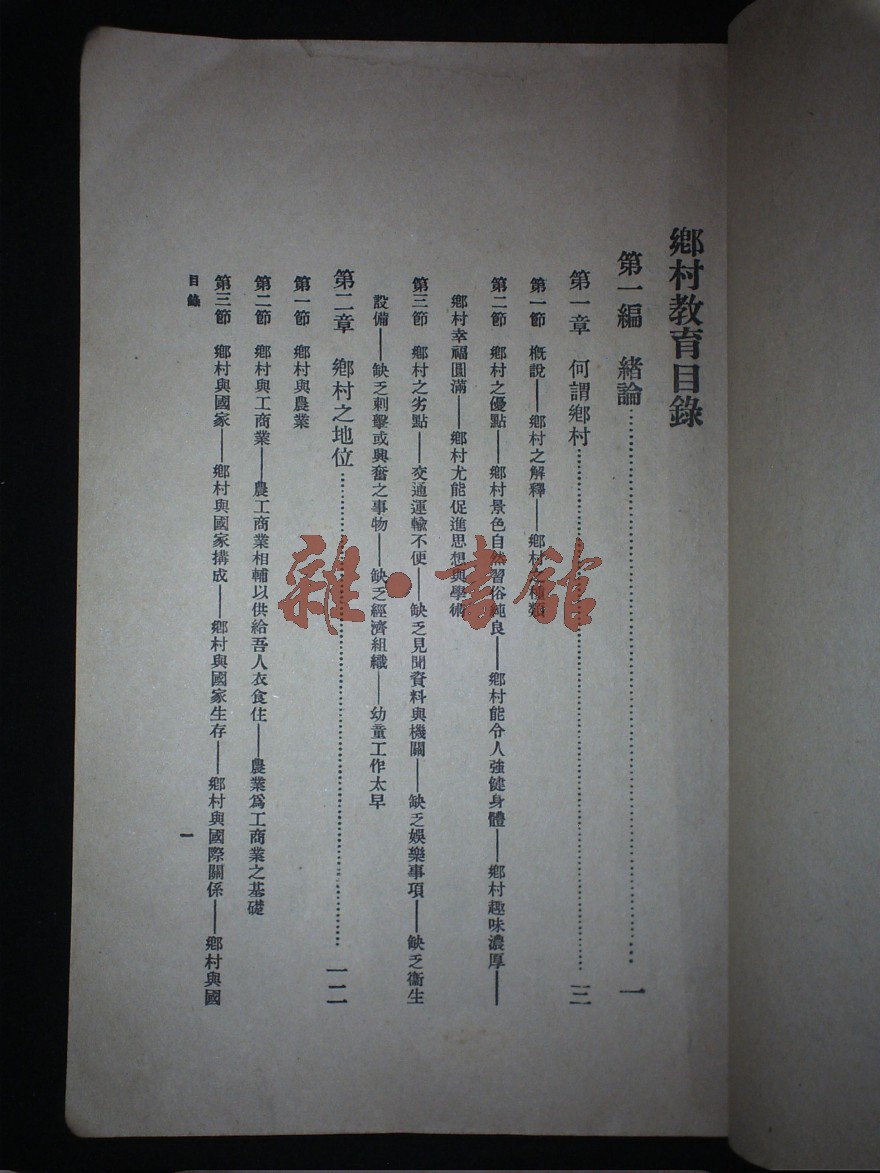 鄉村教育目錄
第一編　緒論…………一
第一章　何謂鄉村…………三
第一節　概說——鄉村之解釋——鄉村之種類
第二節　鄉村之優點——鄉村景色自然習俗純良——鄉村能令人強健身體——鄉村趣味濃厚——
鄉村幸福圓滿——鄉村尤能促進思想與學術
第三節　鄉村之劣點——交通運輸不便——缺乏見聞資料與機關——缺乏娛樂事項——缺乏衞生
設備——缺乏刺擊或興奮之事物——缺乏經濟組織——幼童工作太早
第二章　鄉村之地位…………一二
第一節　鄉村與農業
第二節　鄉村與工商業——農工商業相輔以供給吾人衣食住——農業爲工商業之基礎
第三節　鄉村與國家——鄉村與國家搆成——鄉村與國家生存——鄉村與國際關係——鄉村與國
目錄　一
雜·書館